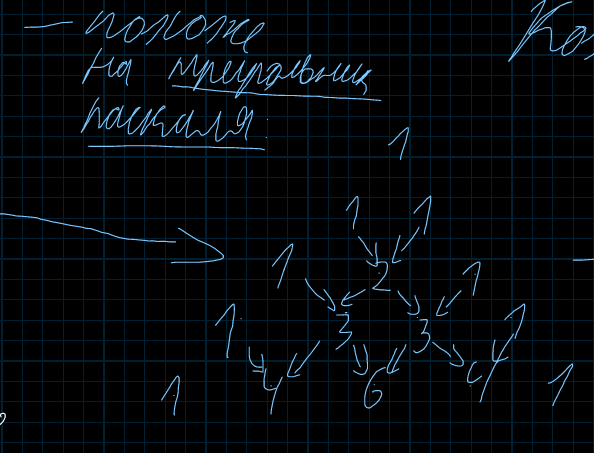 — похоже
на треугольник
паскаля.
1
1 1
1 2 1
1 3 3 1
1 4 6 4 1